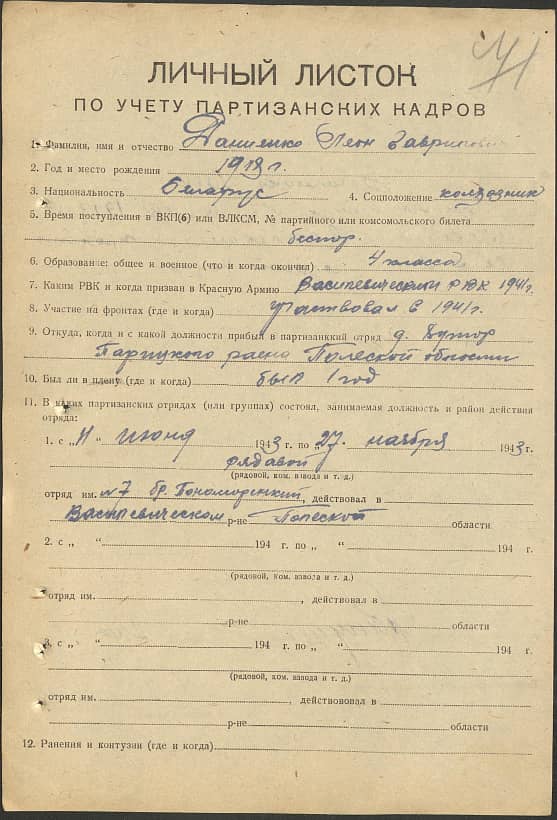 ЛИЧНЫЙ ЛИСТОК
ПО УЧЕТУ ПАРТИЗАНСКИХ КАДРОВ
1. Фамилия, имя и отчество Даниленко Леон Гаврилович
2. Год и место рождения 1913 г.
3. Национальность беларус 4. Соцположение колхозник
5. Время поступления в ВКП(б) или ВЛКСМ, № партийного или комсомольского билета
беспар.
6. Образование: общее и военное (что и когда окончил) 4 класса
7. Каким РВК и когда призван в Красную Армию Василевическим РВК 1941г.
8. Участие на фронтах (где и когда) участвовал в 1941г.
9. Откуда, когда и с какой должности прибыл в партизанкский отряд д.
Парицкого раена Полеской области
10. Был ли в плену (где и когда) был 1 год
11. В каких партизанских отрядах (или группах) состоял, занимаемая должность и район действия
отряда:
1. с „11“ июня 1943 г. по „27“ ноября 1943 г.
рядавой
(рядовой, ком. взвода и т. д.)
отряд им. №7 бр. Пономоренки, действовал в
Василевическом р-не Полеской области
2. с „ “ 194 г. по „ “ 194 г.
(рядовой, ком. взвода и т. д.)
отряд им. , действовал в
р-не области
3. с „ “ 194 г. по „ “ 194 г.
(рядовой, ком. взвода и т. д.)
отряд им. , действововал в
р-не области
12. Ранения и контузии (где и когда)